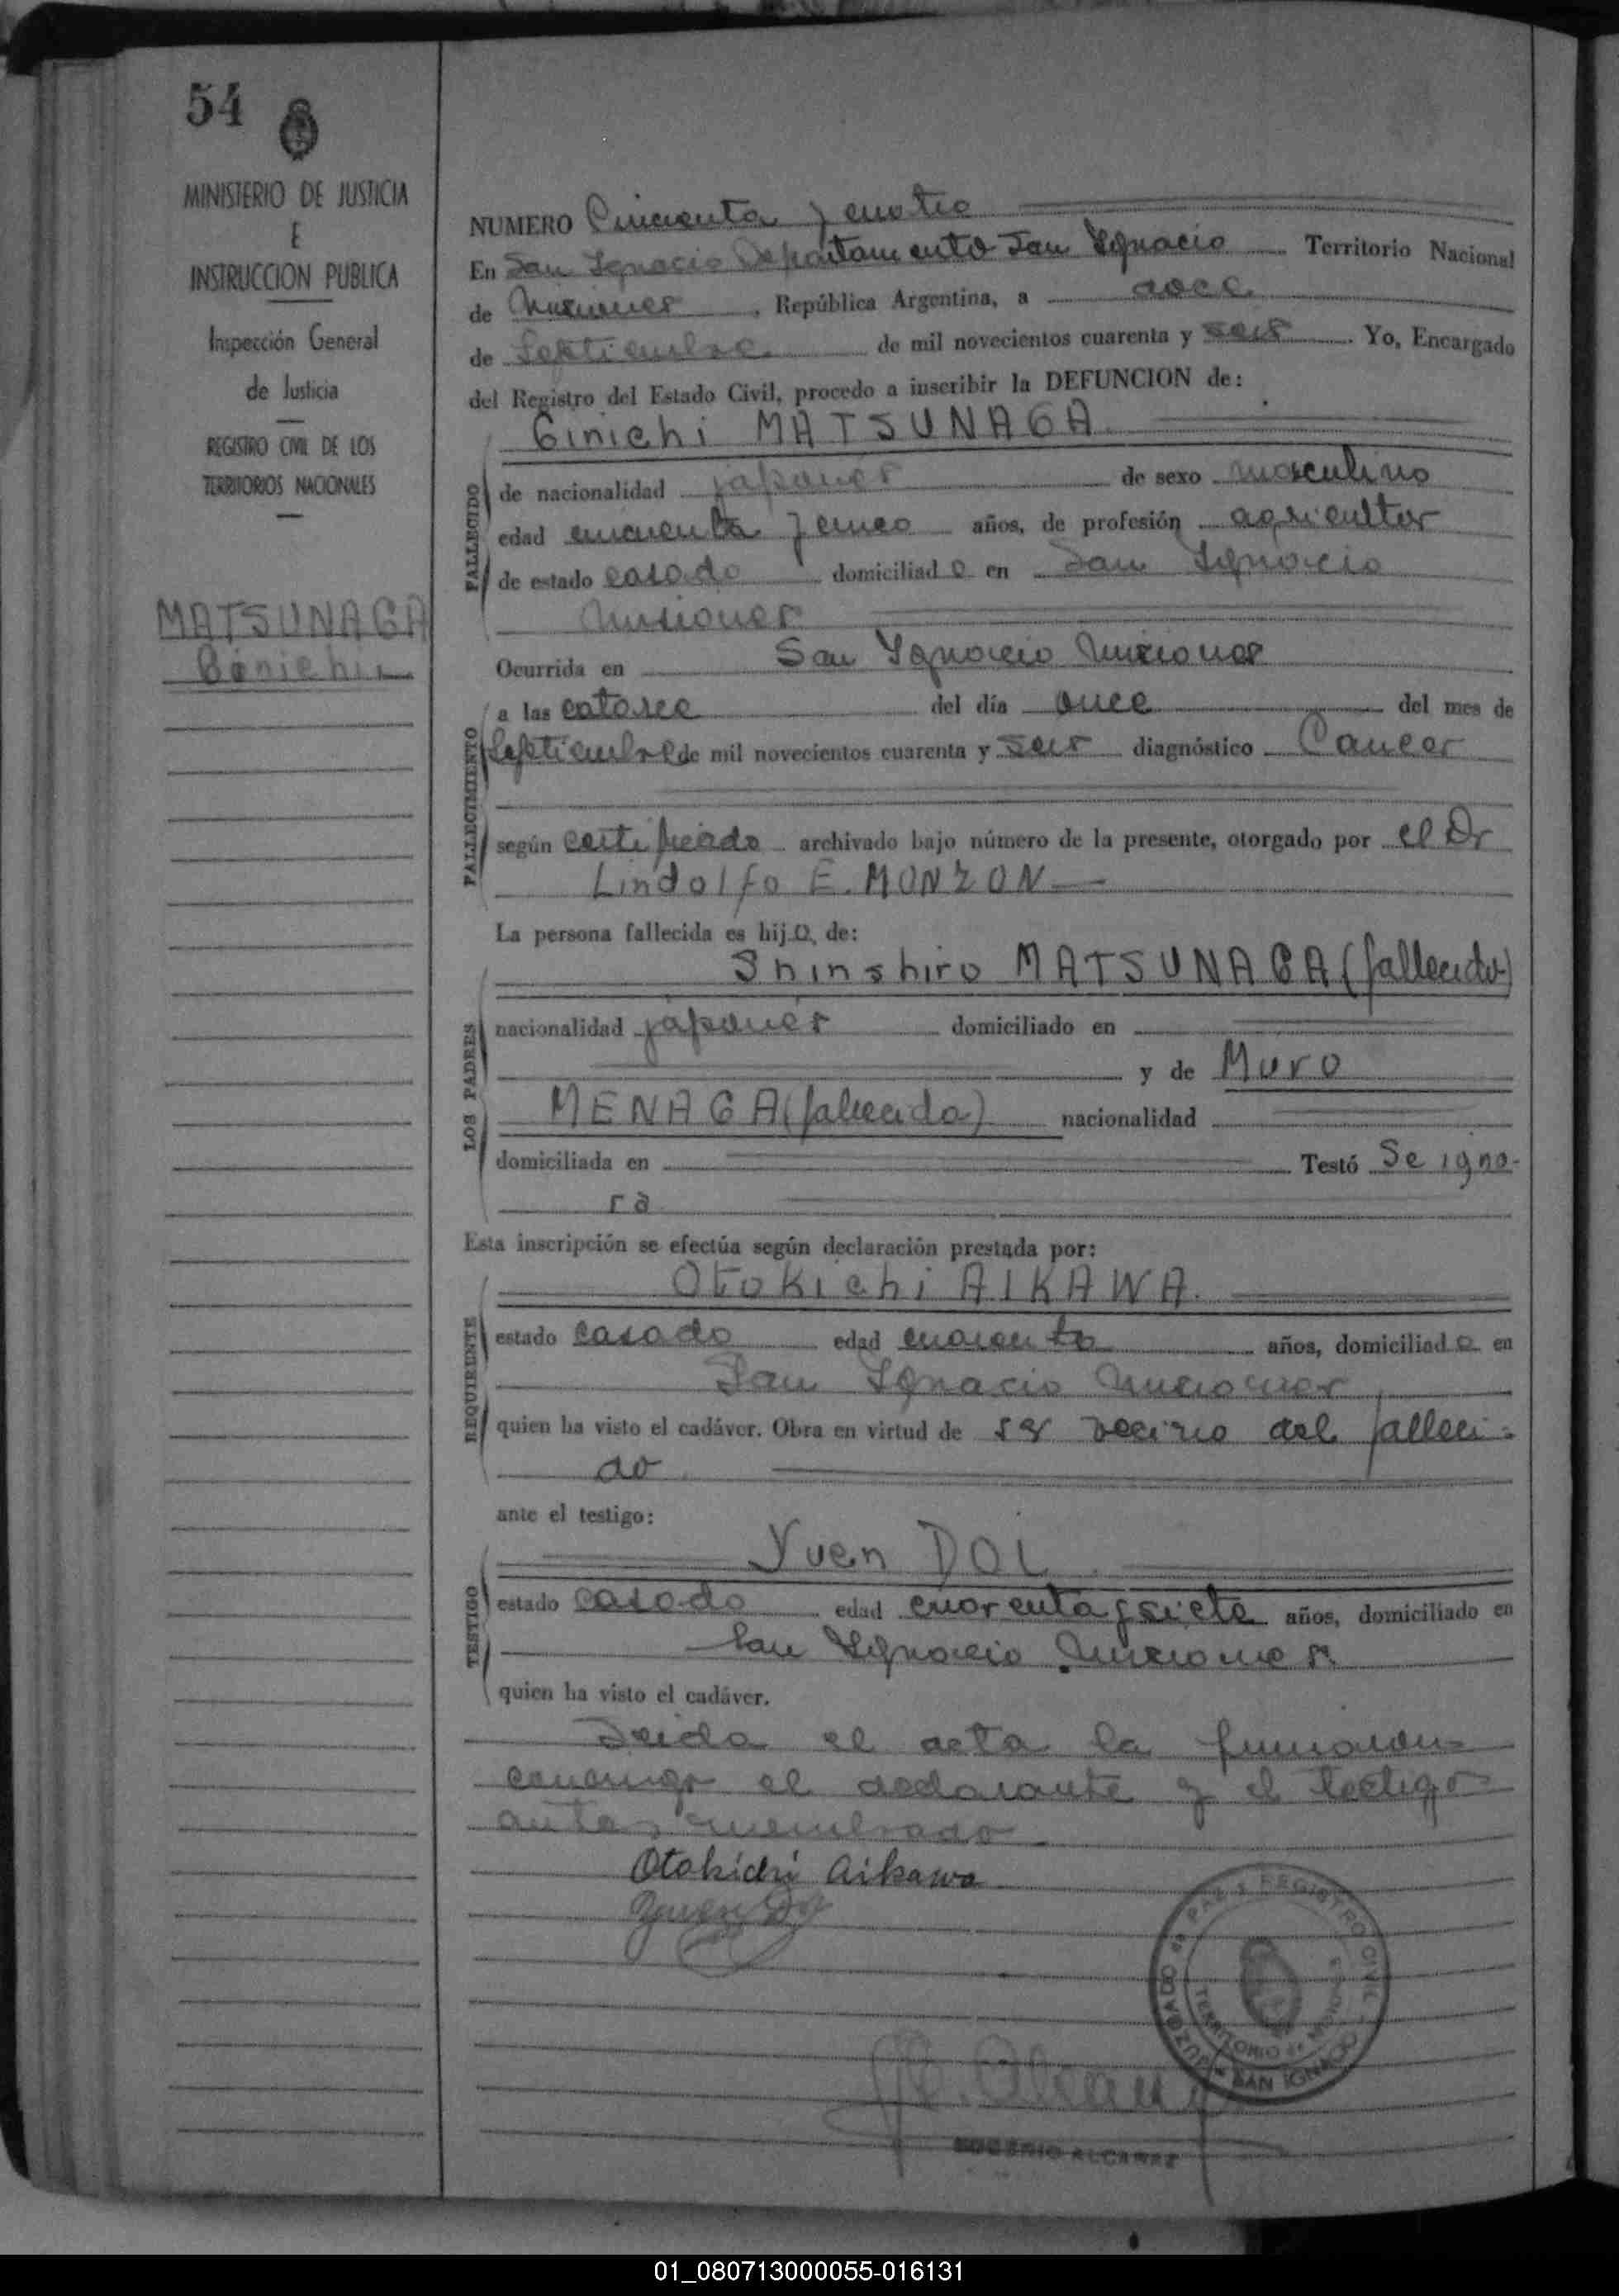 54
MINISTERIO DE JUSTICIA
E
INSTRUCCION PUBLICA
Inspección General
de Justicia
REGISTRO CIVIL DE LOS
TERRITORIOS NACIONALES
MATSUNAGA
Ginichi
NUMERO Cincuenta y cuatro
En San Ignacio Departamento San Ignacio Territorio Nacional
de Misiones, República Argentina, a doce
de Septiembre de mil novecientos cuarenta y seis. Yo, Encargado
del Registro del Estado Civil, procedo a inscribir la DEFUNCION de:
Ginichi MATSUNAGA
FALLECIDO
de nacionalidad japonés de sexo masculino
edad cincuenta y cinco años, de profesión agricultor
de estado casado domiciliado en San Ignacio
Misiones
Ocurrida en San Ignacio Misiones
FALLECIMIENTO
a las catorce del día once del mes de
Septiembre de mil novecientos cuarenta y seis diagnóstico Cancer
según certificado archivado bajo número de la presente, otorgado por el Dr
Lindolfo E. MONZON
La persona fallecida es hijo, de:
Shinshiro MATSUNAGA (fallecido)
LOS PADRES
nacionalidad japonés domiciliado en
y de Muro
MENAGA (fallecida) nacionalidad
domiciliada en Testó Se igno-
ra
Esta inscripción se efectúa según declaración prestada por:
Otokichi AIKAWA.
REQUIRENTE
estado casado edad cuarenta años, domiciliado en
San Ignacio Misiones
quien ha visto el cadáver. Obra en virtud de ser vecino del falleci-
do
ante el testigo:
Yuen DOI
TESTIGO
estado casado edad cuarenta y siete años, domiciliado en
San Ignacio Misiones
quien ha visto el cadáver.
Leida el acta la firmaron
conmigo el declarante y el testigo
antes nombrado
Otokichi Aikawa
Yuen Doi
JUZGADO de PAZ y REGISTRO CIVIL
TERRITORIO de MISIONES
SAN IGNACIO
ROGERIO ALCARAZ
01_080713000055-016131